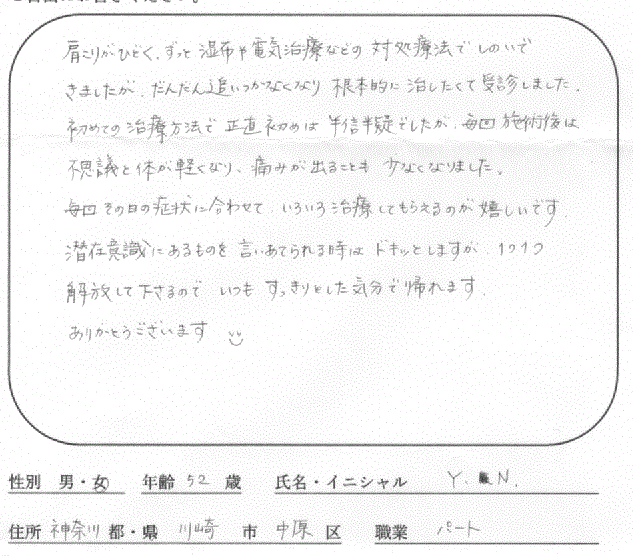 肩こりがひどく、ずっと湿布や電気治療などの対処療法でしのいで
きましたが、だんだん追いつかなくなり根本的に治したくて受診しました。
初めての治療方法で正直初めは半信半疑でしたが、毎回施術後は
不思議と体が軽くなり、痛みが出ることも少なくなりました。
毎回その日の症状に合わせて、いろいろ治療してもらえるのが嬉しいです。
潜在意識にあるものを言いあてられる時はドキッとしますが、1つ1つ
解放して下さるのでいつもすっきりとした気分で帰れます。
ありがとうございます
性別 男・女 年齢 52 歳 氏名・イニシャル Y. N.
住所 神奈川 都・県 川崎 市 中原 区 職業 パート